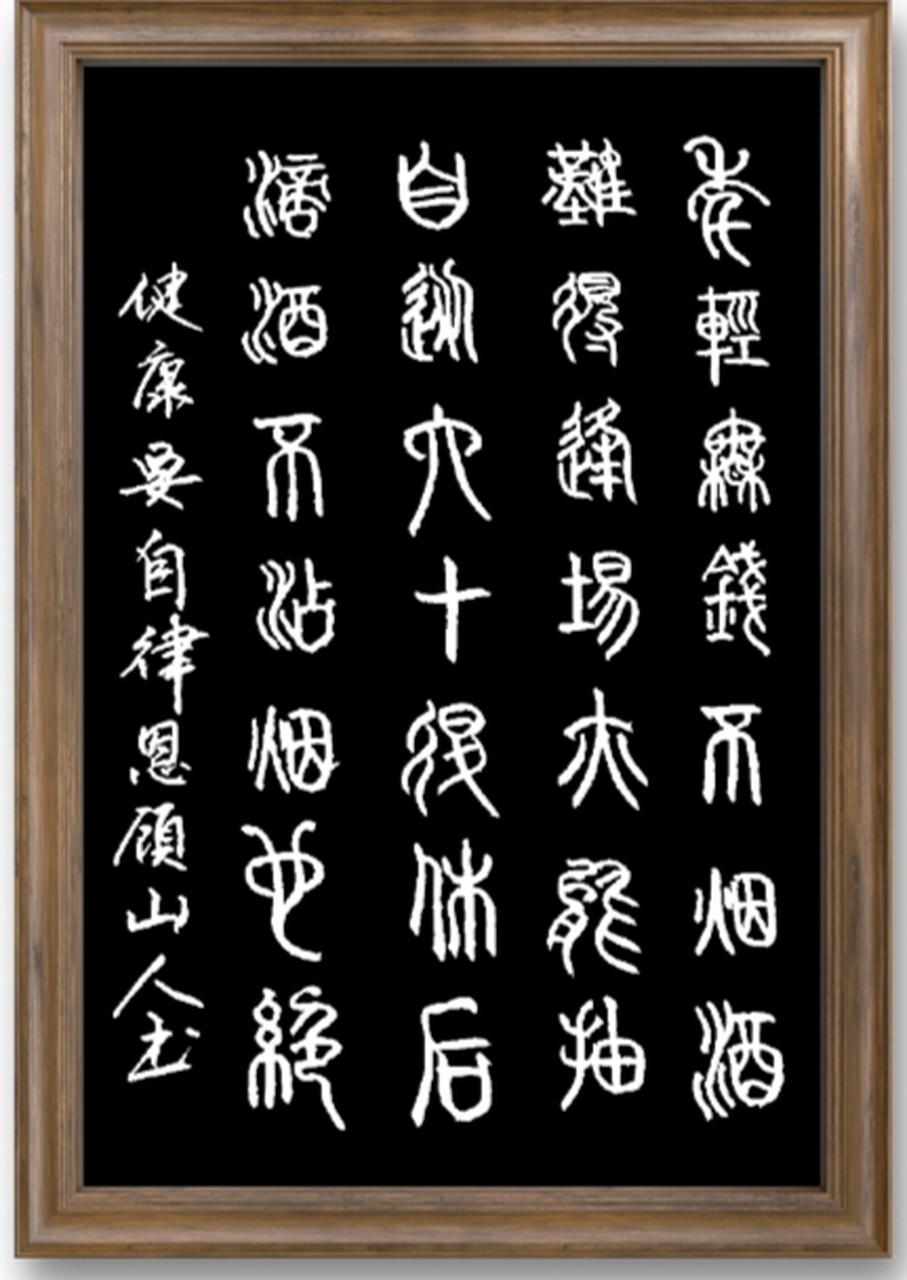 年輕無錢不烟酒
難得逢場亦能抽
自從六十退休后
滴酒不沾烟也絕
健康要自律恩頋山人书